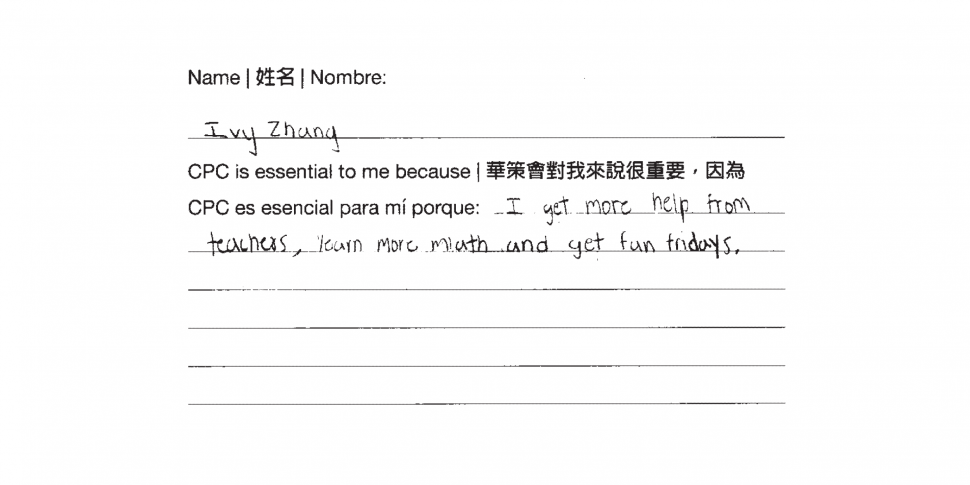 Name | 姓名 | Nombre:
Ivy Zhang
CPC is essential to me because | 華策會對我來說很重要，因為
CPC es esencial para mí porque: I get more help from
teachers, learn more math and get fun fridays.